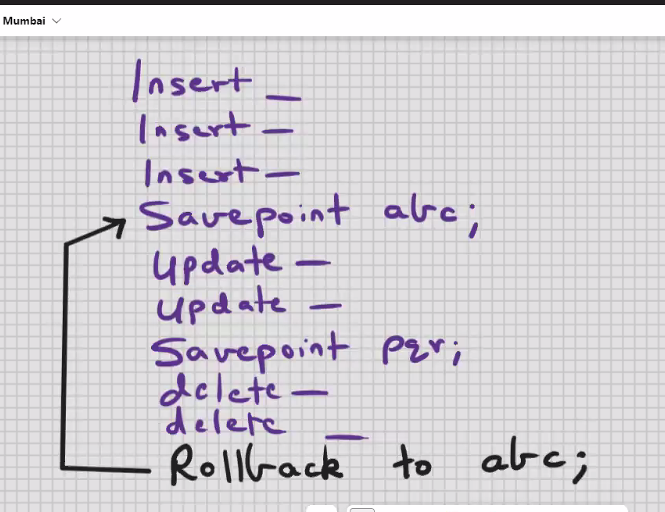 Mumbai
Insert _
Insert —
Insert —
Savepoint abc;
Update —
Update —
Savepoint pqr;
delete —
delete _
Rollback to abc;